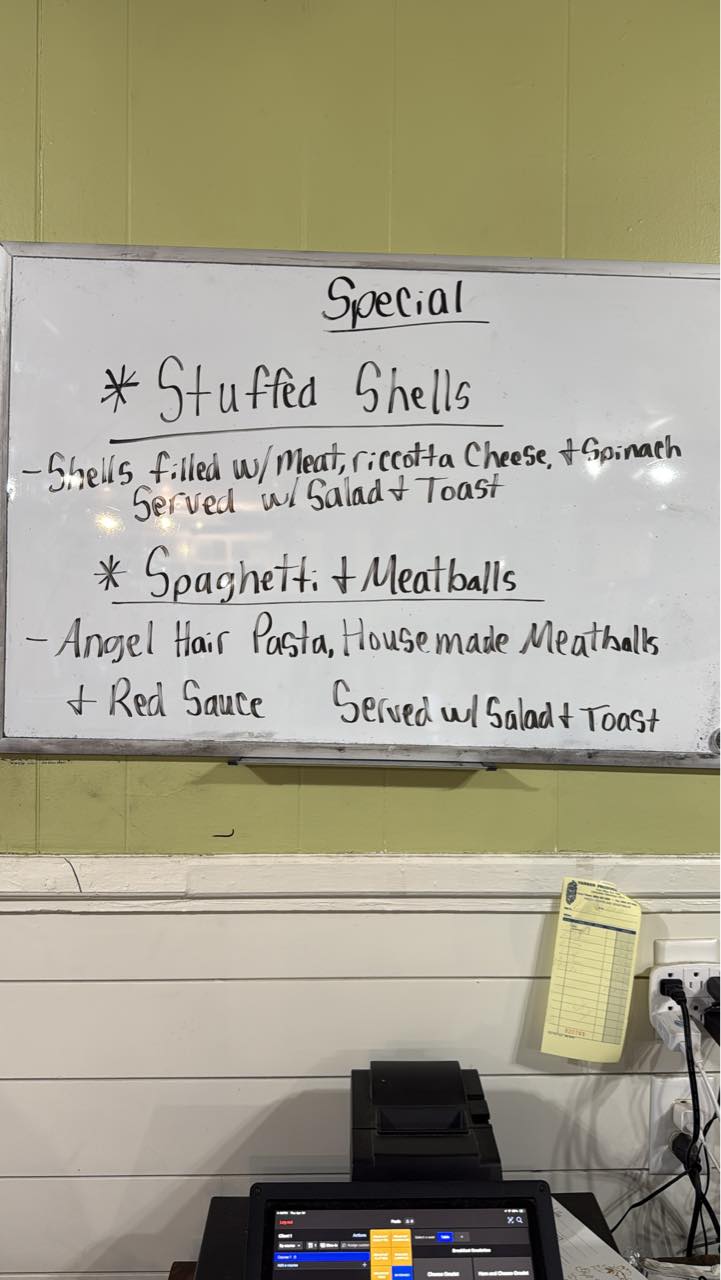 Special
* Stuffed Shells
- Shells filled w/ Meat, riccotta Cheese, + Spinach
Served w/ Salad + Toast
* Spaghetti + Meatballs
- Angel Hair Pasta, Housemade Meatballs
+ Red Sauce Served w/ Salad + Toast
Log out
Actions